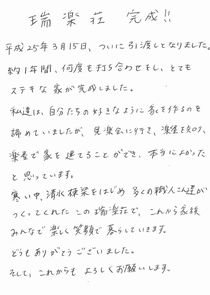 瑞楽荘 完成!!
平成25年3月15日、ついに引渡しとなりました。
約1年間、何度も打ち合わせをし、とても
ステキな家が完成しました。
私達は、自分たちの好きなように家を作るのを
諦めていましたが、見楽会に行き、
楽屋で家を建てることができ、本当によかった
と思っています。
寒い中、清水棟梁をはじめ 多くの職人さん達が
つくってくれた この瑞楽荘で、これから家族
みんなで楽しく笑顔で暮らしていきます。
どうもありがとうございました。
そして、これからも よろしくお願いします。